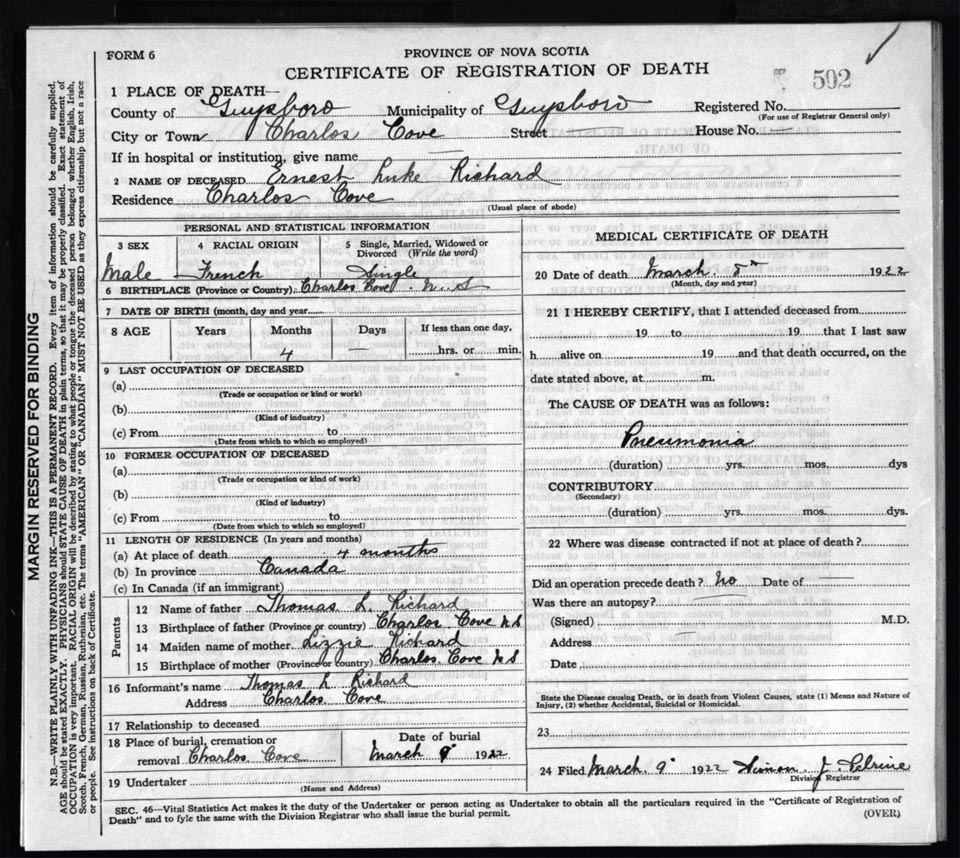 FORM 6
PROVINCE OF NOVA SCOTIA
CERTIFICATE OF REGISTRATION OF DEATH
502
1 PLACE OF DEATH—
County of Guysboro Municipality of Guysboro Registered No.
(For use of Registrar General only)
City or Town Charlos Cove Street House No.
If in hospital or institution, give name
2 NAME OF DECEASED Ernest Luke Richard
Residence Charlos Cove
(Usual place of abode)
PERSONAL AND STATISTICAL INFORMATION
3 SEX 4 RACIAL ORIGIN 5 Single, Married, Widowed or Divorced (Write the word)
Male French Single
6 BIRTHPLACE (Province or Country) Charlos Cove N. S
7 DATE OF BIRTH (month, day and year)
8 AGE Years Months Days If less than one day,
4 — hrs. or min.
9 LAST OCCUPATION OF DECEASED
(a)
(Trade or occupation or kind or work)
(b)
(Kind of industry)
(c) From to
(Date from which to which so employed)
10 FORMER OCCUPATION OF DECEASED
(a)
(Trade or occupation or kind of work)
(b)
(Kind of industry)
(c) From to
(Date from which to which so employed)
11 LENGTH OF RESIDENCE (In years and months)
(a) At place of death 4 months
(b) In province Canada
(c) In Canada (if an immigrant)
Parents
12 Name of father Thomas L. Richard
13 Birthplace of father (Province or country) Charlos Cove N S
14 Maiden name of mother Lizzie Richard
15 Birthplace of mother (Province or country) Charlos Cove N S
16 Informant's name Thomas L Richard
Address Charlos Cove
17 Relationship to deceased
18 Place of burial, cremation or removal Charlos Cove
Date of burial
March 9 1922
19 Undertaker
(Name and Address)
MEDICAL CERTIFICATE OF DEATH
20 Date of death March 8th 1922
(Month, day and year)
21 I HEREBY CERTIFY, that I attended deceased from
19 to 19 that I last saw
h alive on 19 and that death occurred, on the
date stated above, at m.
The CAUSE OF DEATH was as follows:
Pneumonia
(duration) yrs. mos. dys
CONTRIBUTORY
(Secondary)
(duration) yrs. mos. dys.
22 Where was disease contracted if not at place of death?
Did an operation precede death? no Date of
Was there an autopsy?
(Signed) M.D.
Address
Date
State the Disease causing Death, or in death from Violent Causes, state (1) Means and Nature of
Injury, (2) whether Accidental, Suicidal or Homicidal.
23
24 Filed March 9 1922 Simon J. Pelrine
Division Registrar
SEC. 46—Vital Statistics Act makes it the duty of the Undertaker or person acting as Undertaker to obtain all the particulars required in the "Certificate of Registration of
Death" and to fyle the same with the Division Registrar who shall issue the burial permit.
(OVER)
MARGIN RESERVED FOR BINDING
N.B.—WRITE PLAINLY WITH UNFADING INK—THIS IS A PERMANENT RECORD. Every item of information should be carefully supplied.
AGE should be stated EXACTLY. PHYSICIANS should STATE CAUSE OF DEATH in plain terms, so that it may be properly classified. Exact statement of
OCCUPATION is very important. RACIAL ORIGIN will be described by stating to what people or tongue the deceased person belonged whether English, Irish,
Scotch, French, German, Russian, Ruthenian, etc. The terms "AMERICAN" OR "CANADIAN" MUST NOT BE USED as they express citizenship but not a race
or people. See instructions on back of Certificate.